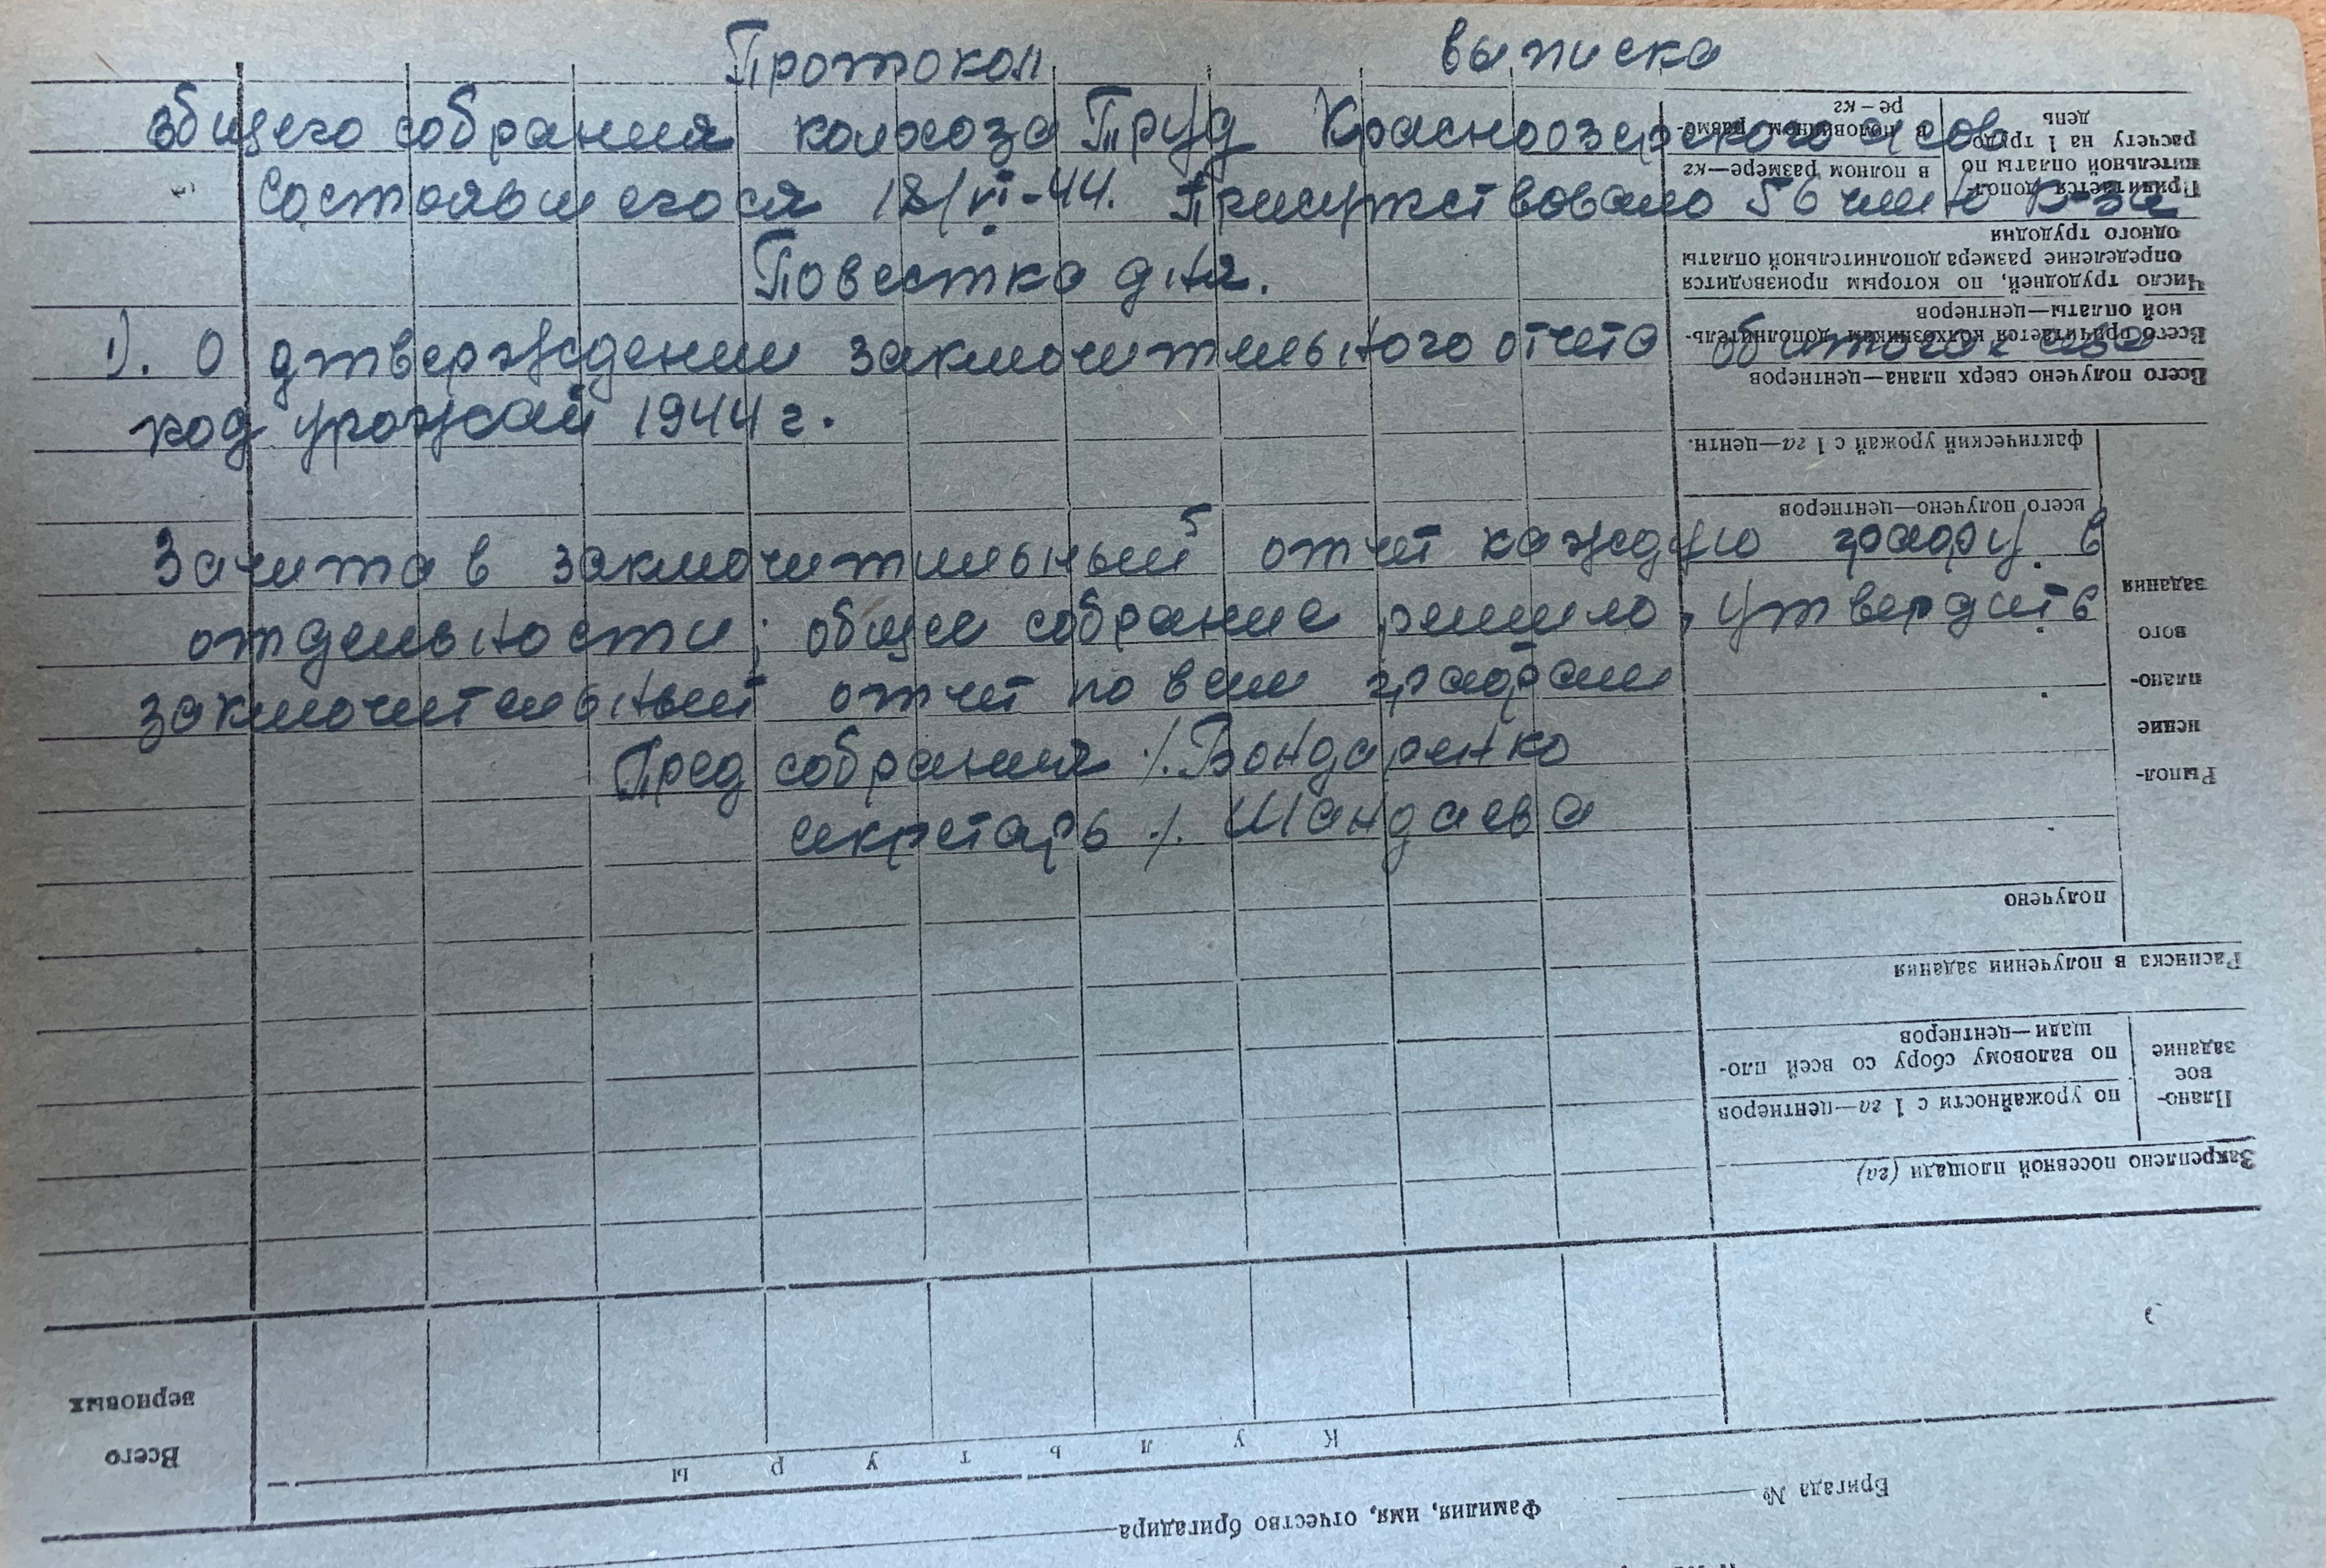 Протокол выписка
общего собрания колхоза Труд Красноозерского с сов
Состоявшегося 18/VI-44. Присутствовало 56 член к-за
Повестка дня.
1). О утверждении заключительного отчета об
под урожай 1944 г.
Зачита в заключительный отчет каждую графу в
отдельности; общее собрание решило, утвердить
заключительный отчет по всем графам
Пред собрания /. Бондаренко
секретарь /. Шандаева
Бригада №
Фамилия, имя, отчество бригадира
КУЛЬТУРЫ
Всего
зерновых
Закреплено посевной площади (га)
Плано-
вое
задание
по урожайности с 1 га—центнеров
по валовому сбору со всей пло-
щади—центнеров
Расписка в получении задания
Выпол-
нение
плано-
вого
задания
получено
всего получено—центнеров
фактический урожай с 1 га—центн.
Всего получено сверх плана—центнеров
Всего причитается колхозникам дополнитель-
ной оплаты—центнеров
Число трудодней, по которым производится
определение размера дополнительной оплаты
одного трудодня
Причитается допол-
нительной оплаты по
расчету на 1 трудо-
день
в полном размере—кг
в половинном разме-
ре—кг